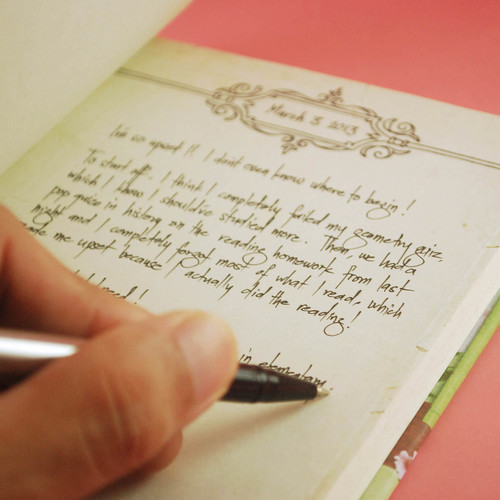 March 3 2013
I'm so upset!! I don't even know where to begin!
To start off, I think I completely failed my geometry quiz,
which I know I should've studied more. Then, we had a
pop quiz in history on the reading homework from last
night and I completely forgot most of what I read, which
made me upset because actually did the reading!
in elementary.